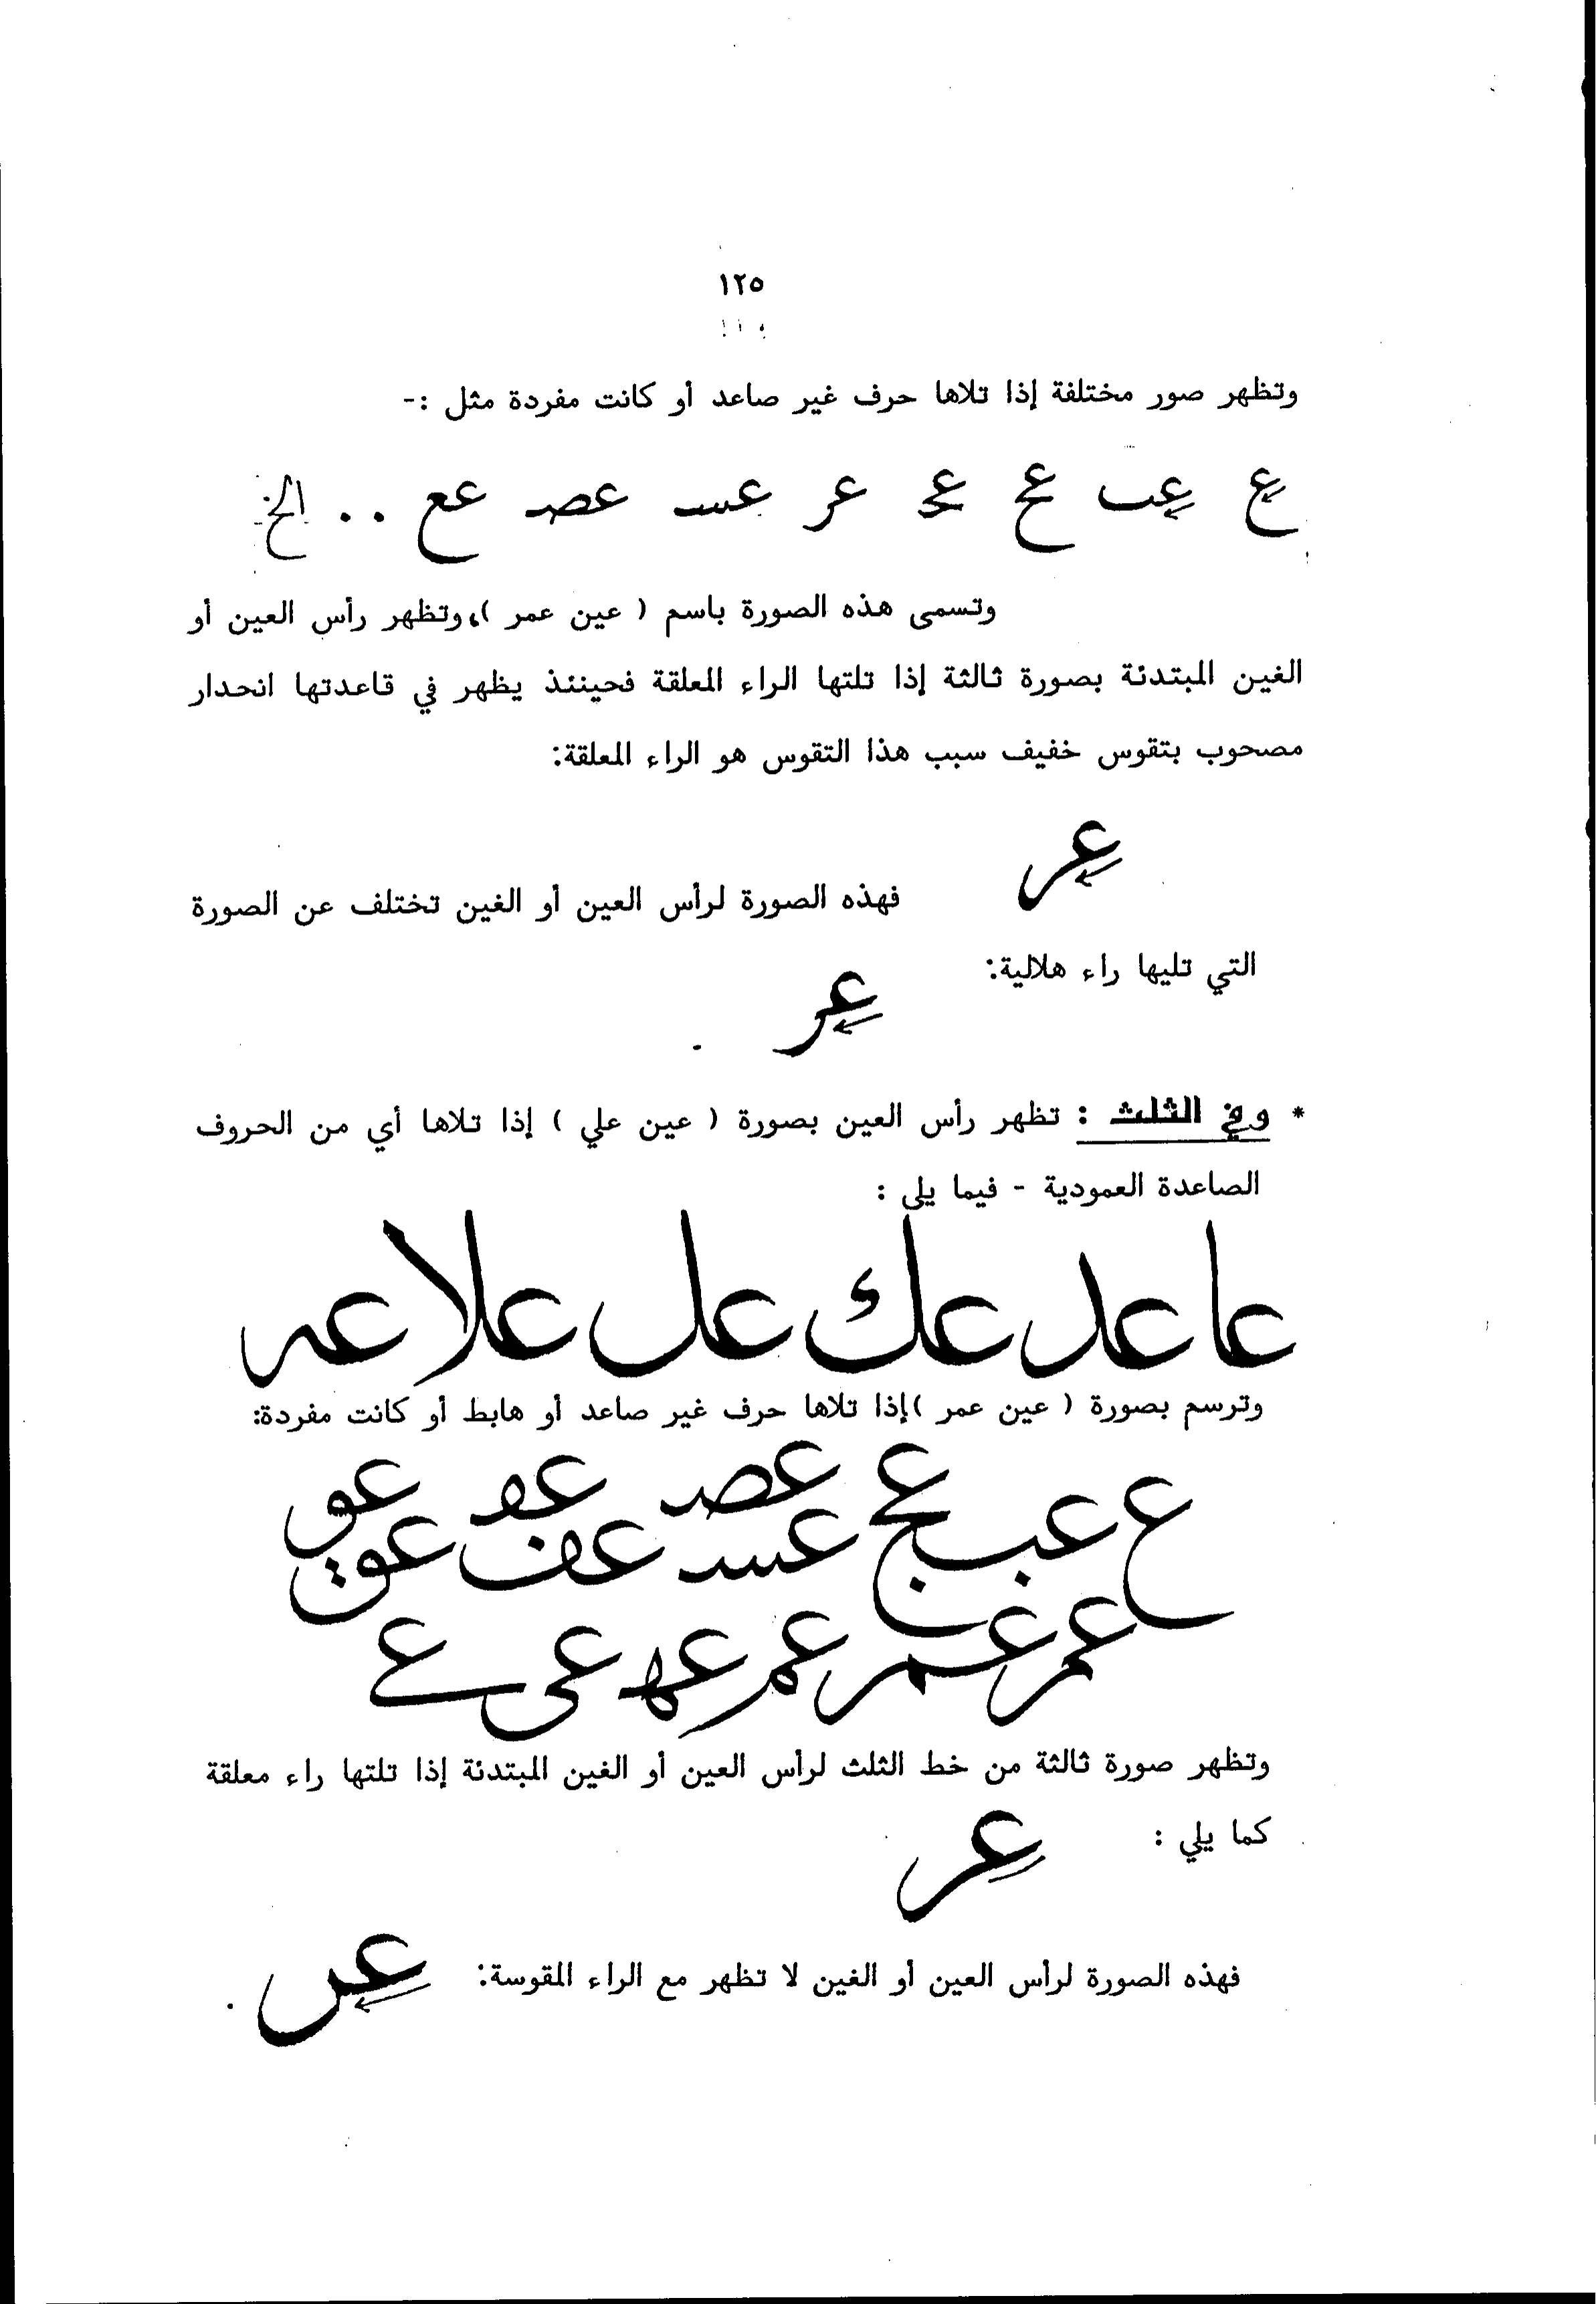 ١٢٥
وتظهر صور مختلفة إذا تلاها حرف غير صاعد أو كانت مفردة مثل :-
ع عب عح عجـ عر عسـ عصـ عع . . الخ
وتسمى هذه الصورة باسم ( عين عمر )، وتظهر رأس العين أو
الغين المبتدئة بصورة ثالثة إذا تلتها الراء المعلقة فحينئذ يظهر في قاعدتها انحدار
مصحوب بتقوس خفيف سبب هذا التقوس هو الراء المعلقة:
عر
فهذه الصورة لرأس العين أو الغين تختلف عن الصورة
التي تليها راء هلالية:
عر .
* وفي الثلث : تظهر رأس العين بصورة ( عين علي ) إذا تلاها أي من الحروف
الصاعدة العمودية - فيما يلي :
عا عد عك عل علا عہ
وترسم بصورة ( عين عمر )إذا تلاها حرف غير صاعد أو هابط أو كانت مفردة:
عصـ عفـ عو
ع عب عج عسـ عف عق
عمر عمر عم عهـ عى ے
وتظهر صورة ثالثة من خط الثلث لرأس العين أو الغين المبتدئة إذا تلتها راء معلقة
كما يلي :
عر
فهذه الصورة لرأس العين أو الغين لا تظهر مع الراء المقوسة: عر .